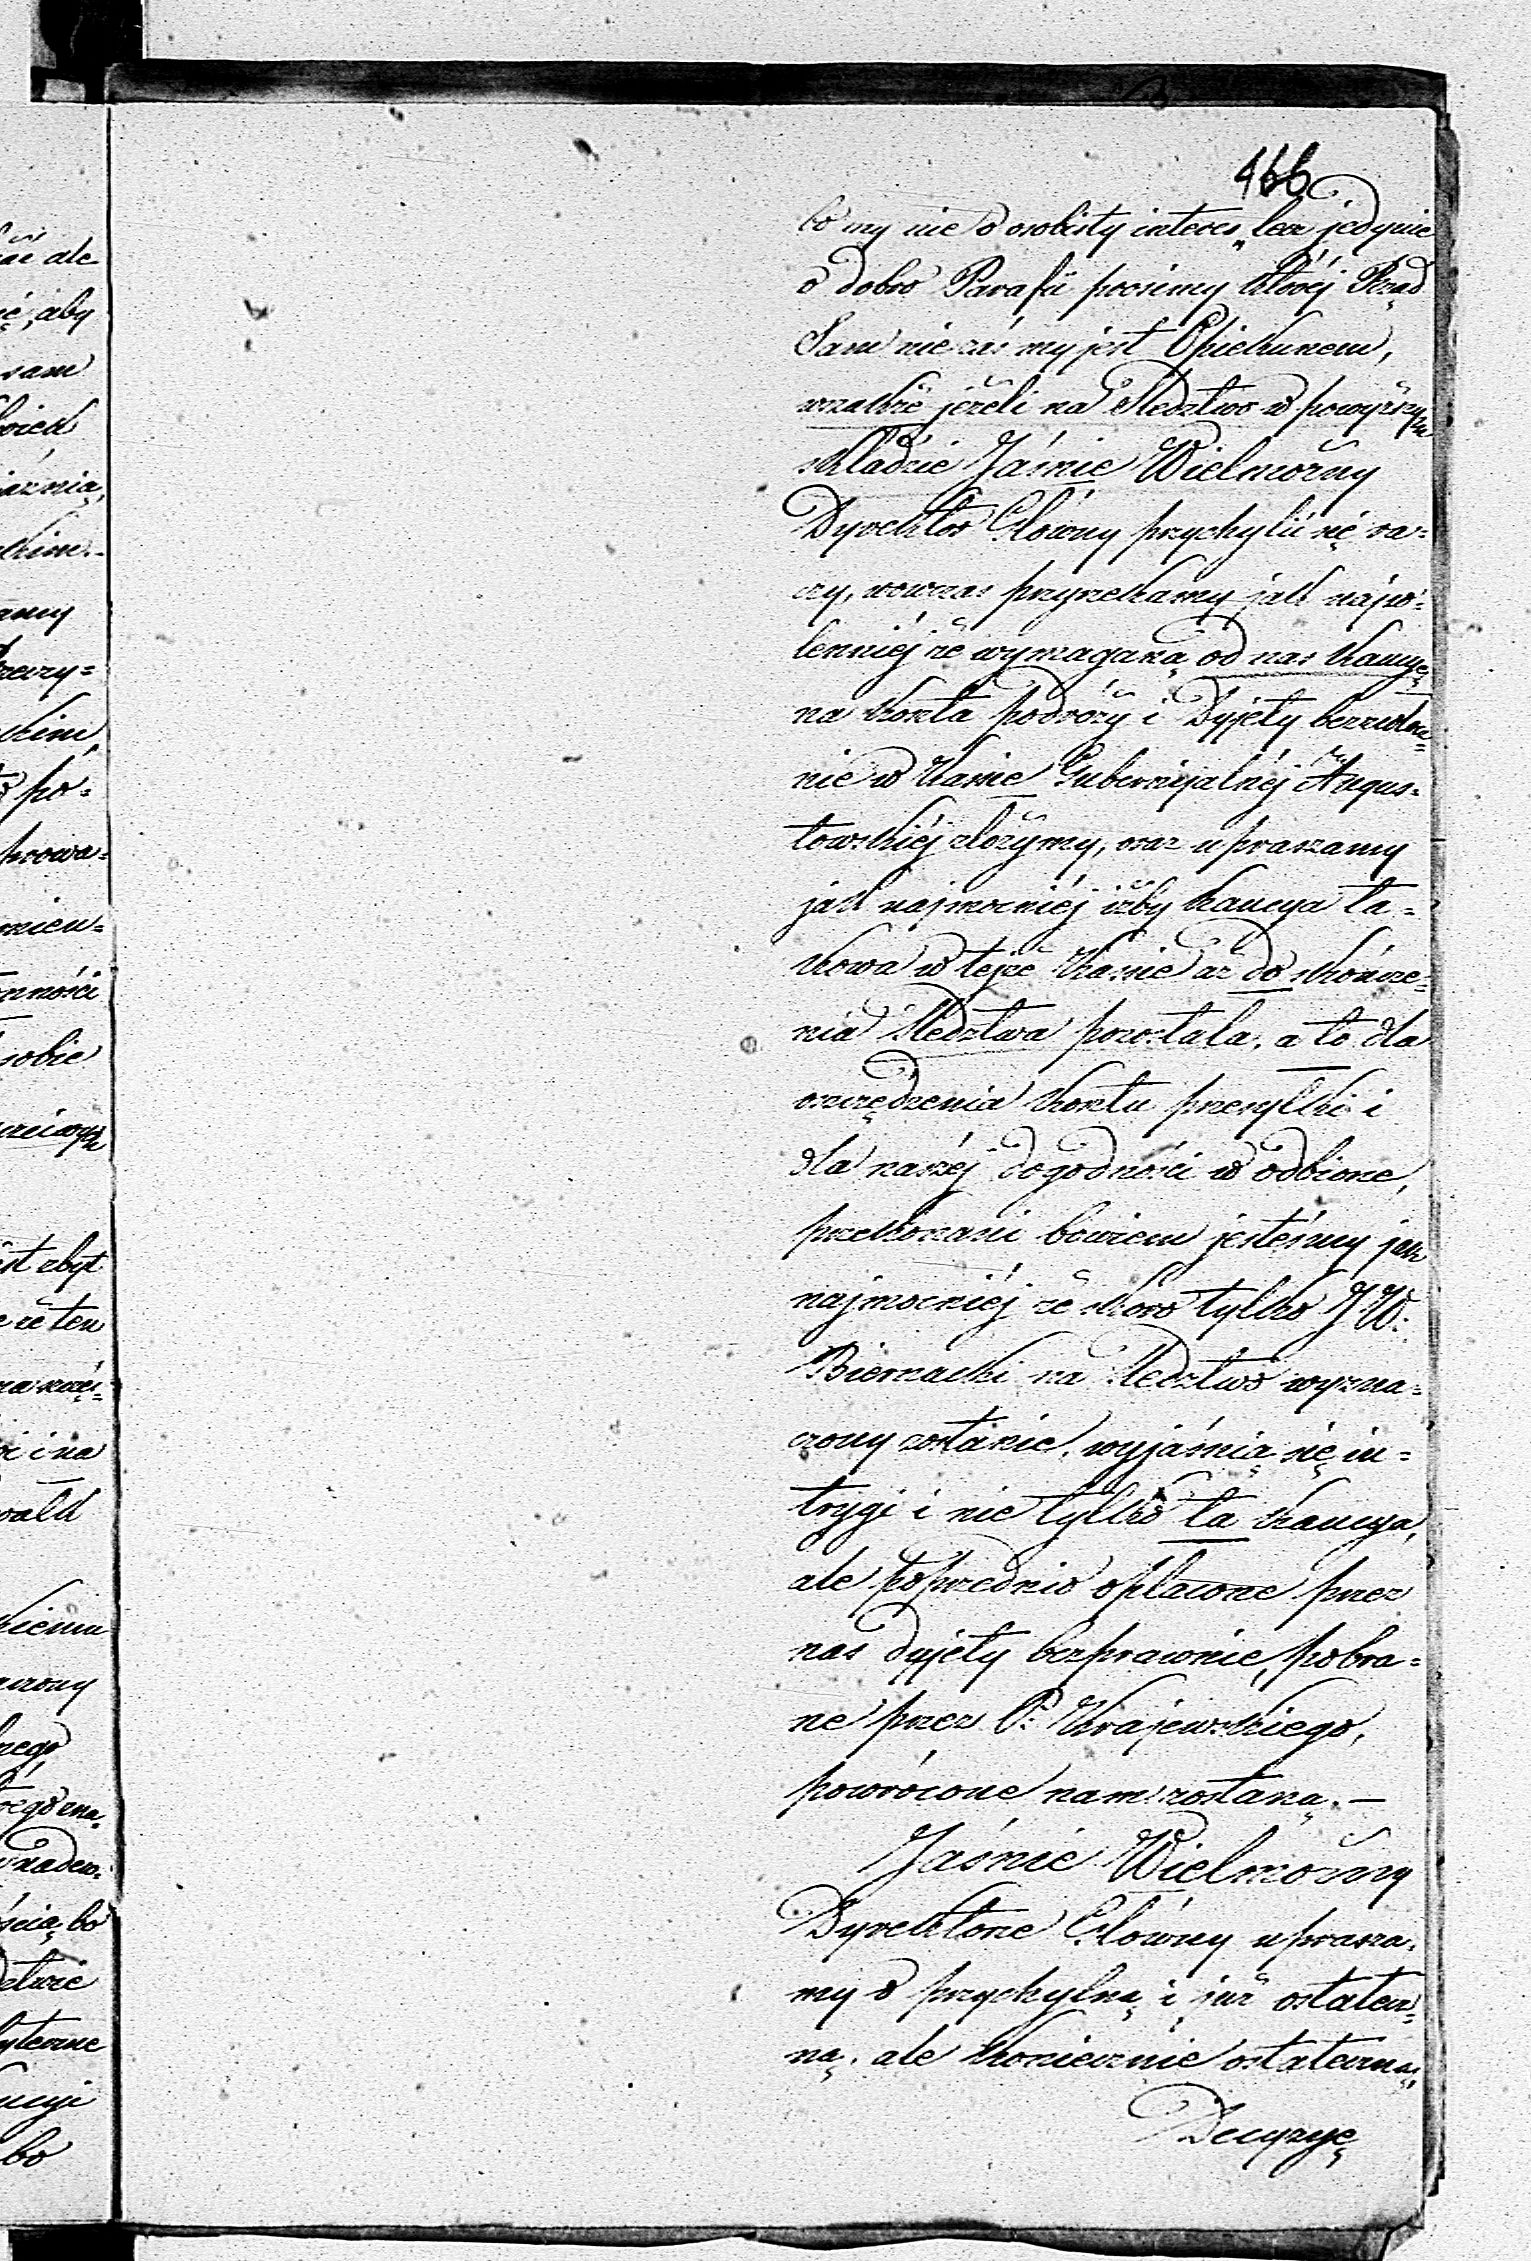 466
bo my nie o osobisty interes, lecz jedynie
o dobro Parafii prosiemy któréj Rząd
Sam nie zaś my jest Opiekunem,
wszakże jeżeli na śledztwo w powyższym
składzie Jaśnie Wielmożny
Dyrektor Główny przychylić się ra=
czy, wówczas przyrzekamy jak najso=
lenniéj że wymaganą od nas kaucyę
na koszta podróży i Dyjety bezzwłocz=
nie w Kassie Gubernijalnéj Augus=
towskiéj złożymy, oraz upraszamy
jak najmocniéj iżby kaucya ta=
kowa w tejże Kassie aż do skończe=
nia śledztwa pozostała, a to dla
oszczędzenia kosztu przesyłki i
dla naszéj dogodności w odbiorze,
przekonani bowiem jesteśmy jak
najmocniéj że skoro tylko JW:
Biernacki na śledztwo wyzna=
czony zostanie, wyjaśnią się in=
trygi i nie tylko ta kaucya,
ale poprzednio opłacone przez
nas dyjety bezprawnie, pobra=
ne przez P: Krajewskiego,
powrócone nam zostaną. —
Jaśnie Wielmożny
Dyrektorze Główny uprasza=
my o przychylną i już ostatecz=
ną, ale koniecznie ostateczną,
Decyzyę
ale
aby
sam
kim
po=
prowa=
sobie
zbyt
że ten
i na
bo
bo